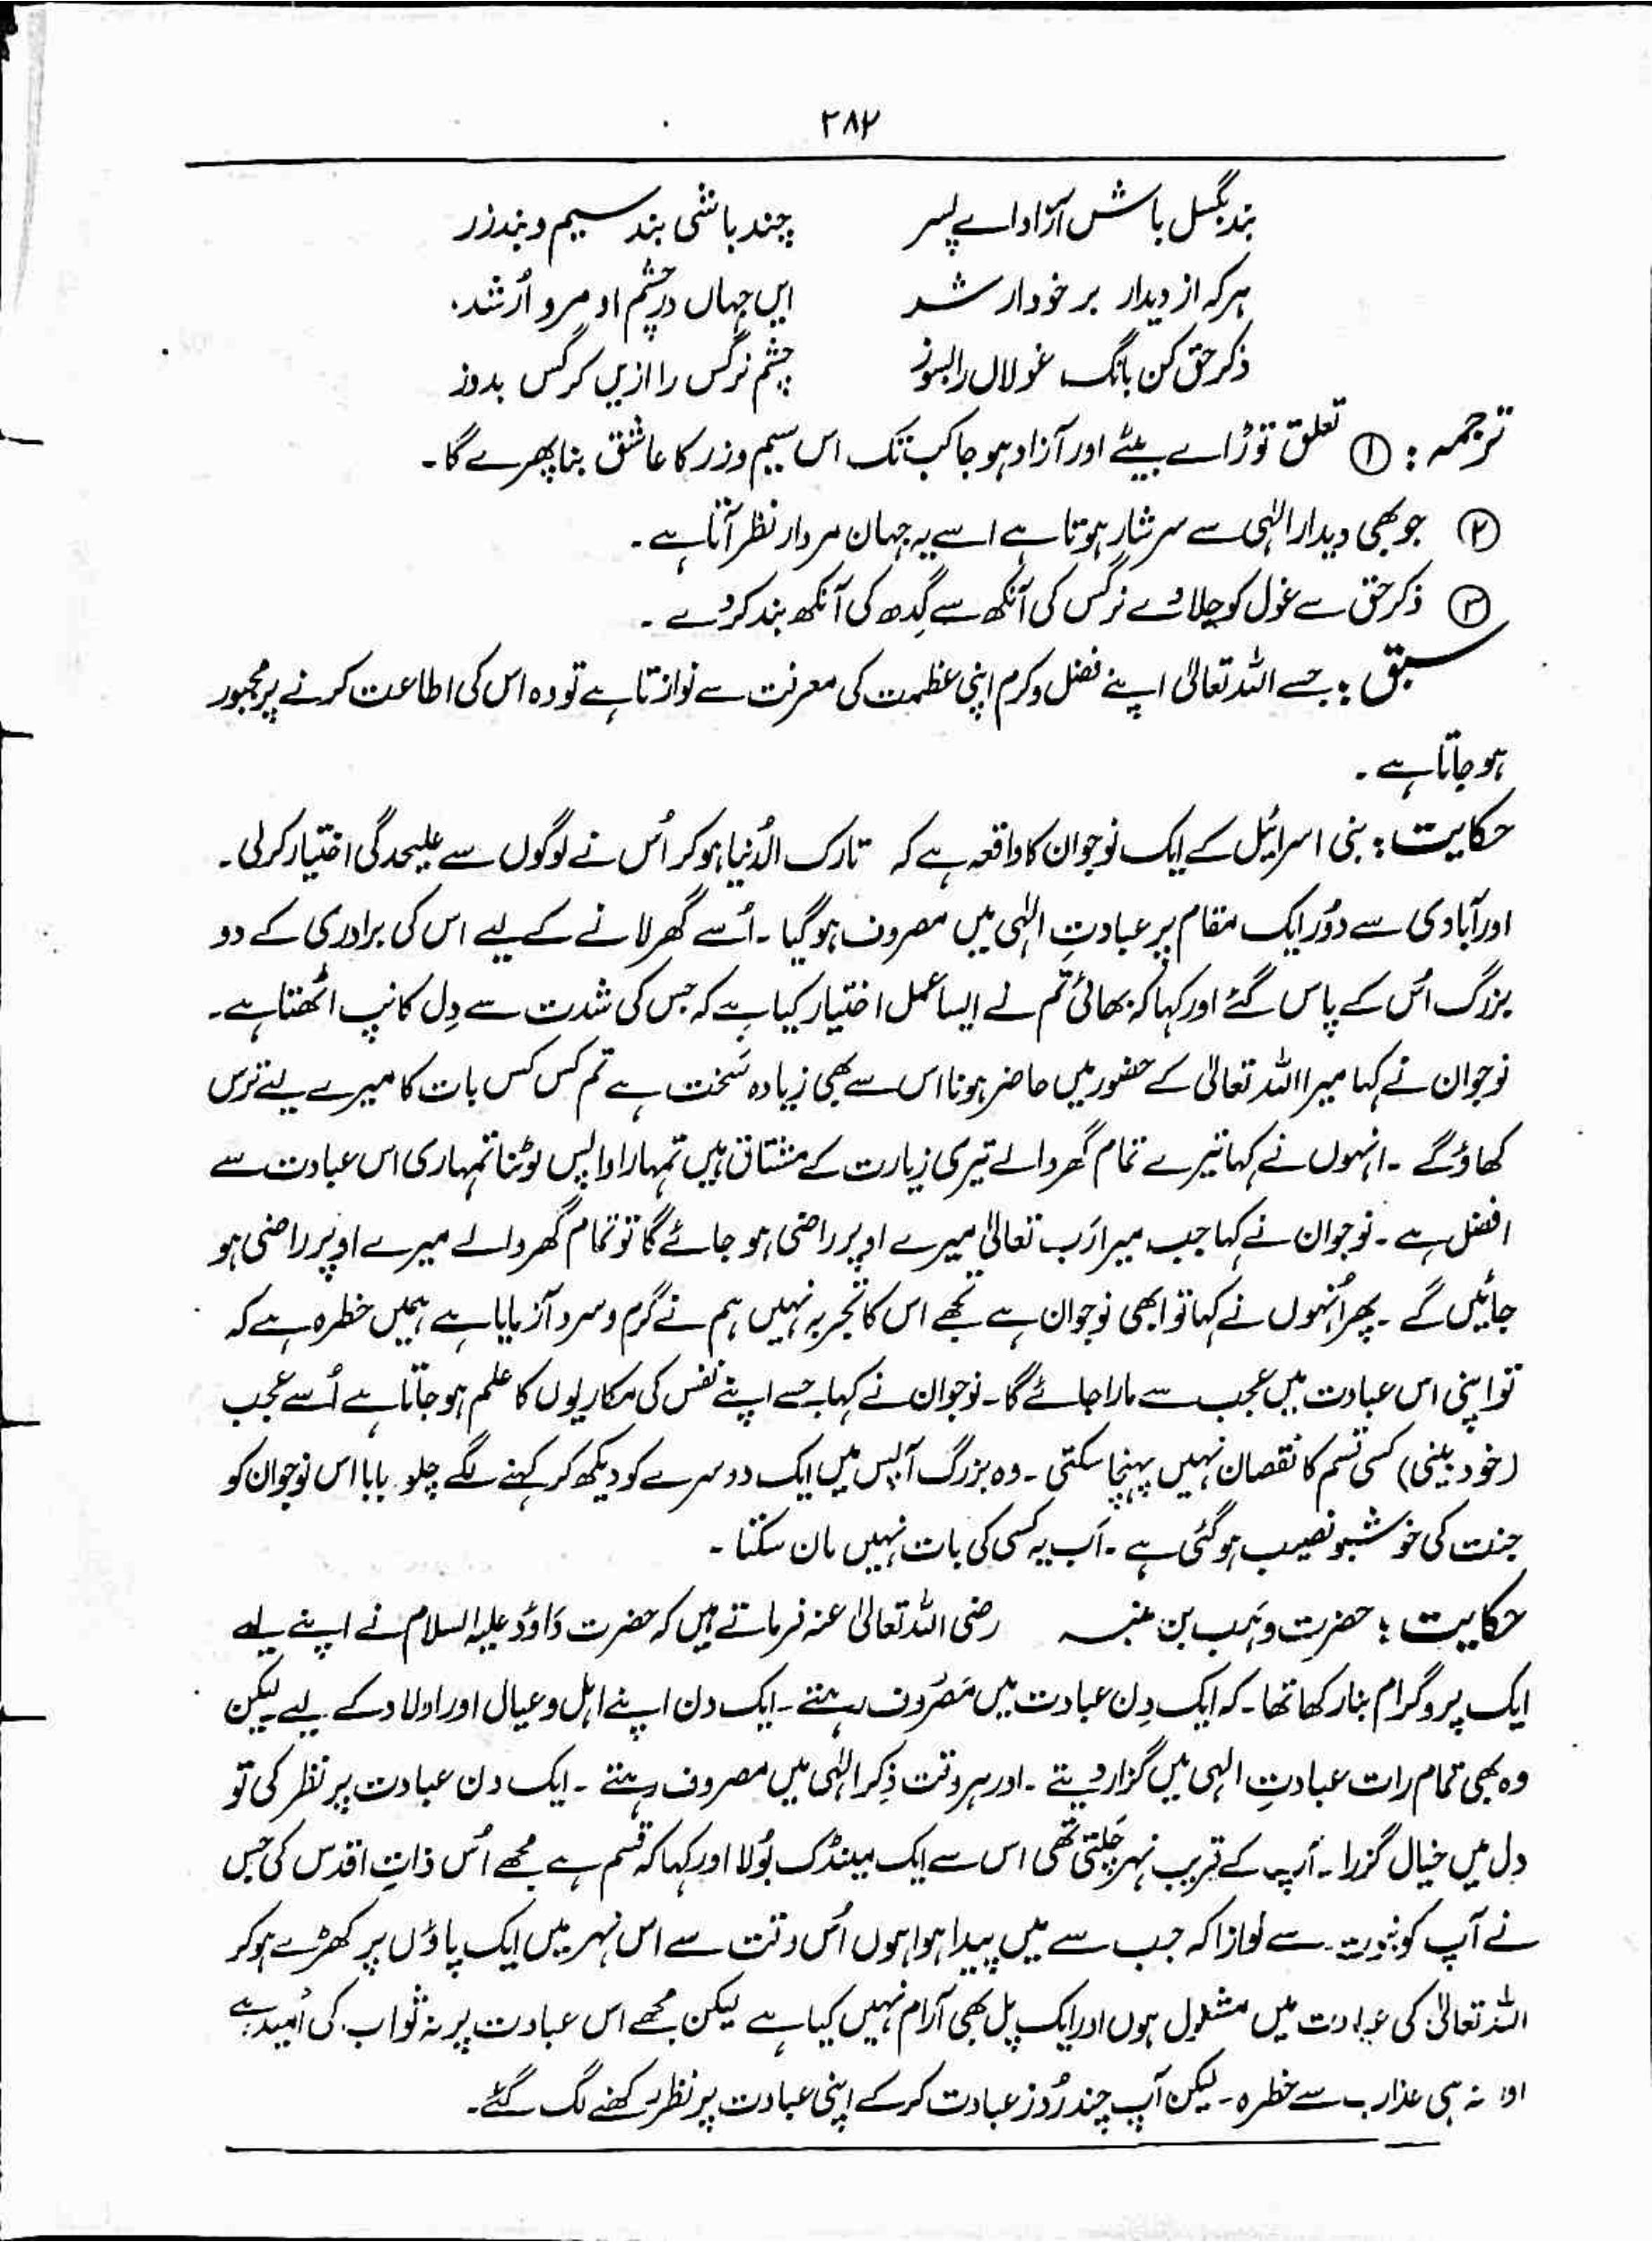 ۲۸۲
بند بگسل باش آزاد اے پسر چند باشی بند سیم و بند زر
ہر کہ از دیدار بر خودار شد ایں جہاں در چشم او مردار شد
ذکر حق کن بانگ غولاں را بسوز چشم نرگس را ازیں کرگس بدوز
ترجمہ : ① تعلق توڑ اے بیٹے اور آزاد ہو جا کب تک اس سیم و زر کا عاشق بنا پھرے گا ۔
② جو بھی دیدار الٰہی سے سرشار ہوتا ہے اسے یہ جہان مردار نظر آتا ہے ۔
③ ذکر حق سے غول کو جلا دے نرگس کی آنکھ سے گِدھ کی آنکھ بند کر دے ۔
سبق : جسے اللہ تعالیٰ اپنے فضل و کرم اپنی عظمت کی معرفت سے نوازتا ہے تو وہ اس کی اطاعت کرنے پر مجبور
ہو جاتا ہے ۔
حکایت : بنی اسرائیل کے ایک نوجوان کا واقعہ ہے کہ تارک الدُنیا ہو کر اُس نے لوگوں سے علیحدگی اختیار کر لی ۔
اور آبادی سے دُور ایک مقام پر عبادتِ الٰہی میں مصروف ہو گیا ۔ اُسے گھر لانے کے لیے اس کی برادری کے دو
بزرگ اُس کے پاس گئے اور کہا کہ بھائی تم نے ایسا عمل اختیار کیا ہے کہ جس کی شدت سے دِل کانپ اٹھتا ہے ۔
نوجوان نے کہا میرا اللہ تعالیٰ کے حضور میں حاضر ہونا اس سے بھی زیادہ سَخت ہے تم کس کس بات کا میرے لیے ترس
کھاؤ گے ۔ انہوں نے کہا تیرے تمام گھر والے تیری زیارت کے مشتاق ہیں تمہارا واپس لوٹنا تمہاری اس عبادت سے
افضل ہے ۔ نوجوان نے کہا جب میرا رَب تعالیٰ میرے اوپر راضی ہو جائے گا تو تمام گھر والے میرے اوپر راضی ہو
جائیں گے ۔ پھر اُنہوں نے کہا تو ابھی نوجوان ہے تجھے اس کا تجربہ نہیں ہم نے گرم و سرد آزمایا ہے ہمیں خطرہ ہے کہ
تو اپنی اس عبادت میں عجب سے مارا جائے گا ۔ نوجوان نے کہا جسے اپنے نفس کی مکاریوں کا علم ہو جاتا ہے اُسے عجب
(خود بینی) کسی قسم کا نقصان نہیں پہنچا سکتی ۔ وہ بزرگ آپس میں ایک دوسرے کو دیکھ کر کہنے لگے چلو بابا اس نوجوان کو
جنت کی خوشبو نصیب ہو گئی ہے ۔ اَب یہ کسی کی بات نہیں مان سکتا ۔
حکایت : حضرت وہب بن منبہ رضی اللہ تعالیٰ عنہ فرماتے ہیں کہ حضرت داؤد علیہ السلام نے اپنے لیے
ایک پروگرام بنا رکھا تھا ۔ کہ ایک دِن عبادت میں مَصرُوف رہتے ۔ ایک دن اپنے اہل و عیال اور اولاد کے لیے لیکن
وہ بھی تمام رات عبادتِ الٰہی میں گزار دیتے ۔ اور ہر وقت ذِکر الٰہی میں مصروف رہتے ۔ ایک دن عبادت پر نظر کی تو
دِل میں خیال گزرا ۔ آپ کے قریب نہر چَلتی تھی اس سے ایک مینڈک بُولا اور کہا کہ قسم ہے مجھے اُس ذاتِ اقدس کی جس
نے آپ کو نبوت سے نوازا کہ جب سے میں پیدا ہوا ہوں اُس وقت سے اس نہر میں ایک پاؤں پر کھڑے ہو کر
اللہ تعالیٰ کی عبادت میں مشغول ہوں اور ایک پل بھی آرام نہیں کیا ہے لیکن مجھے اس عبادت پر نہ ثواب کی اُمید ہے
اور نہ ہی عذاب سے خطرہ ۔ لیکن آپ چند رُوز عبادت کر کے اپنی عبادت پر نظر رکھنے لگ گئے ۔